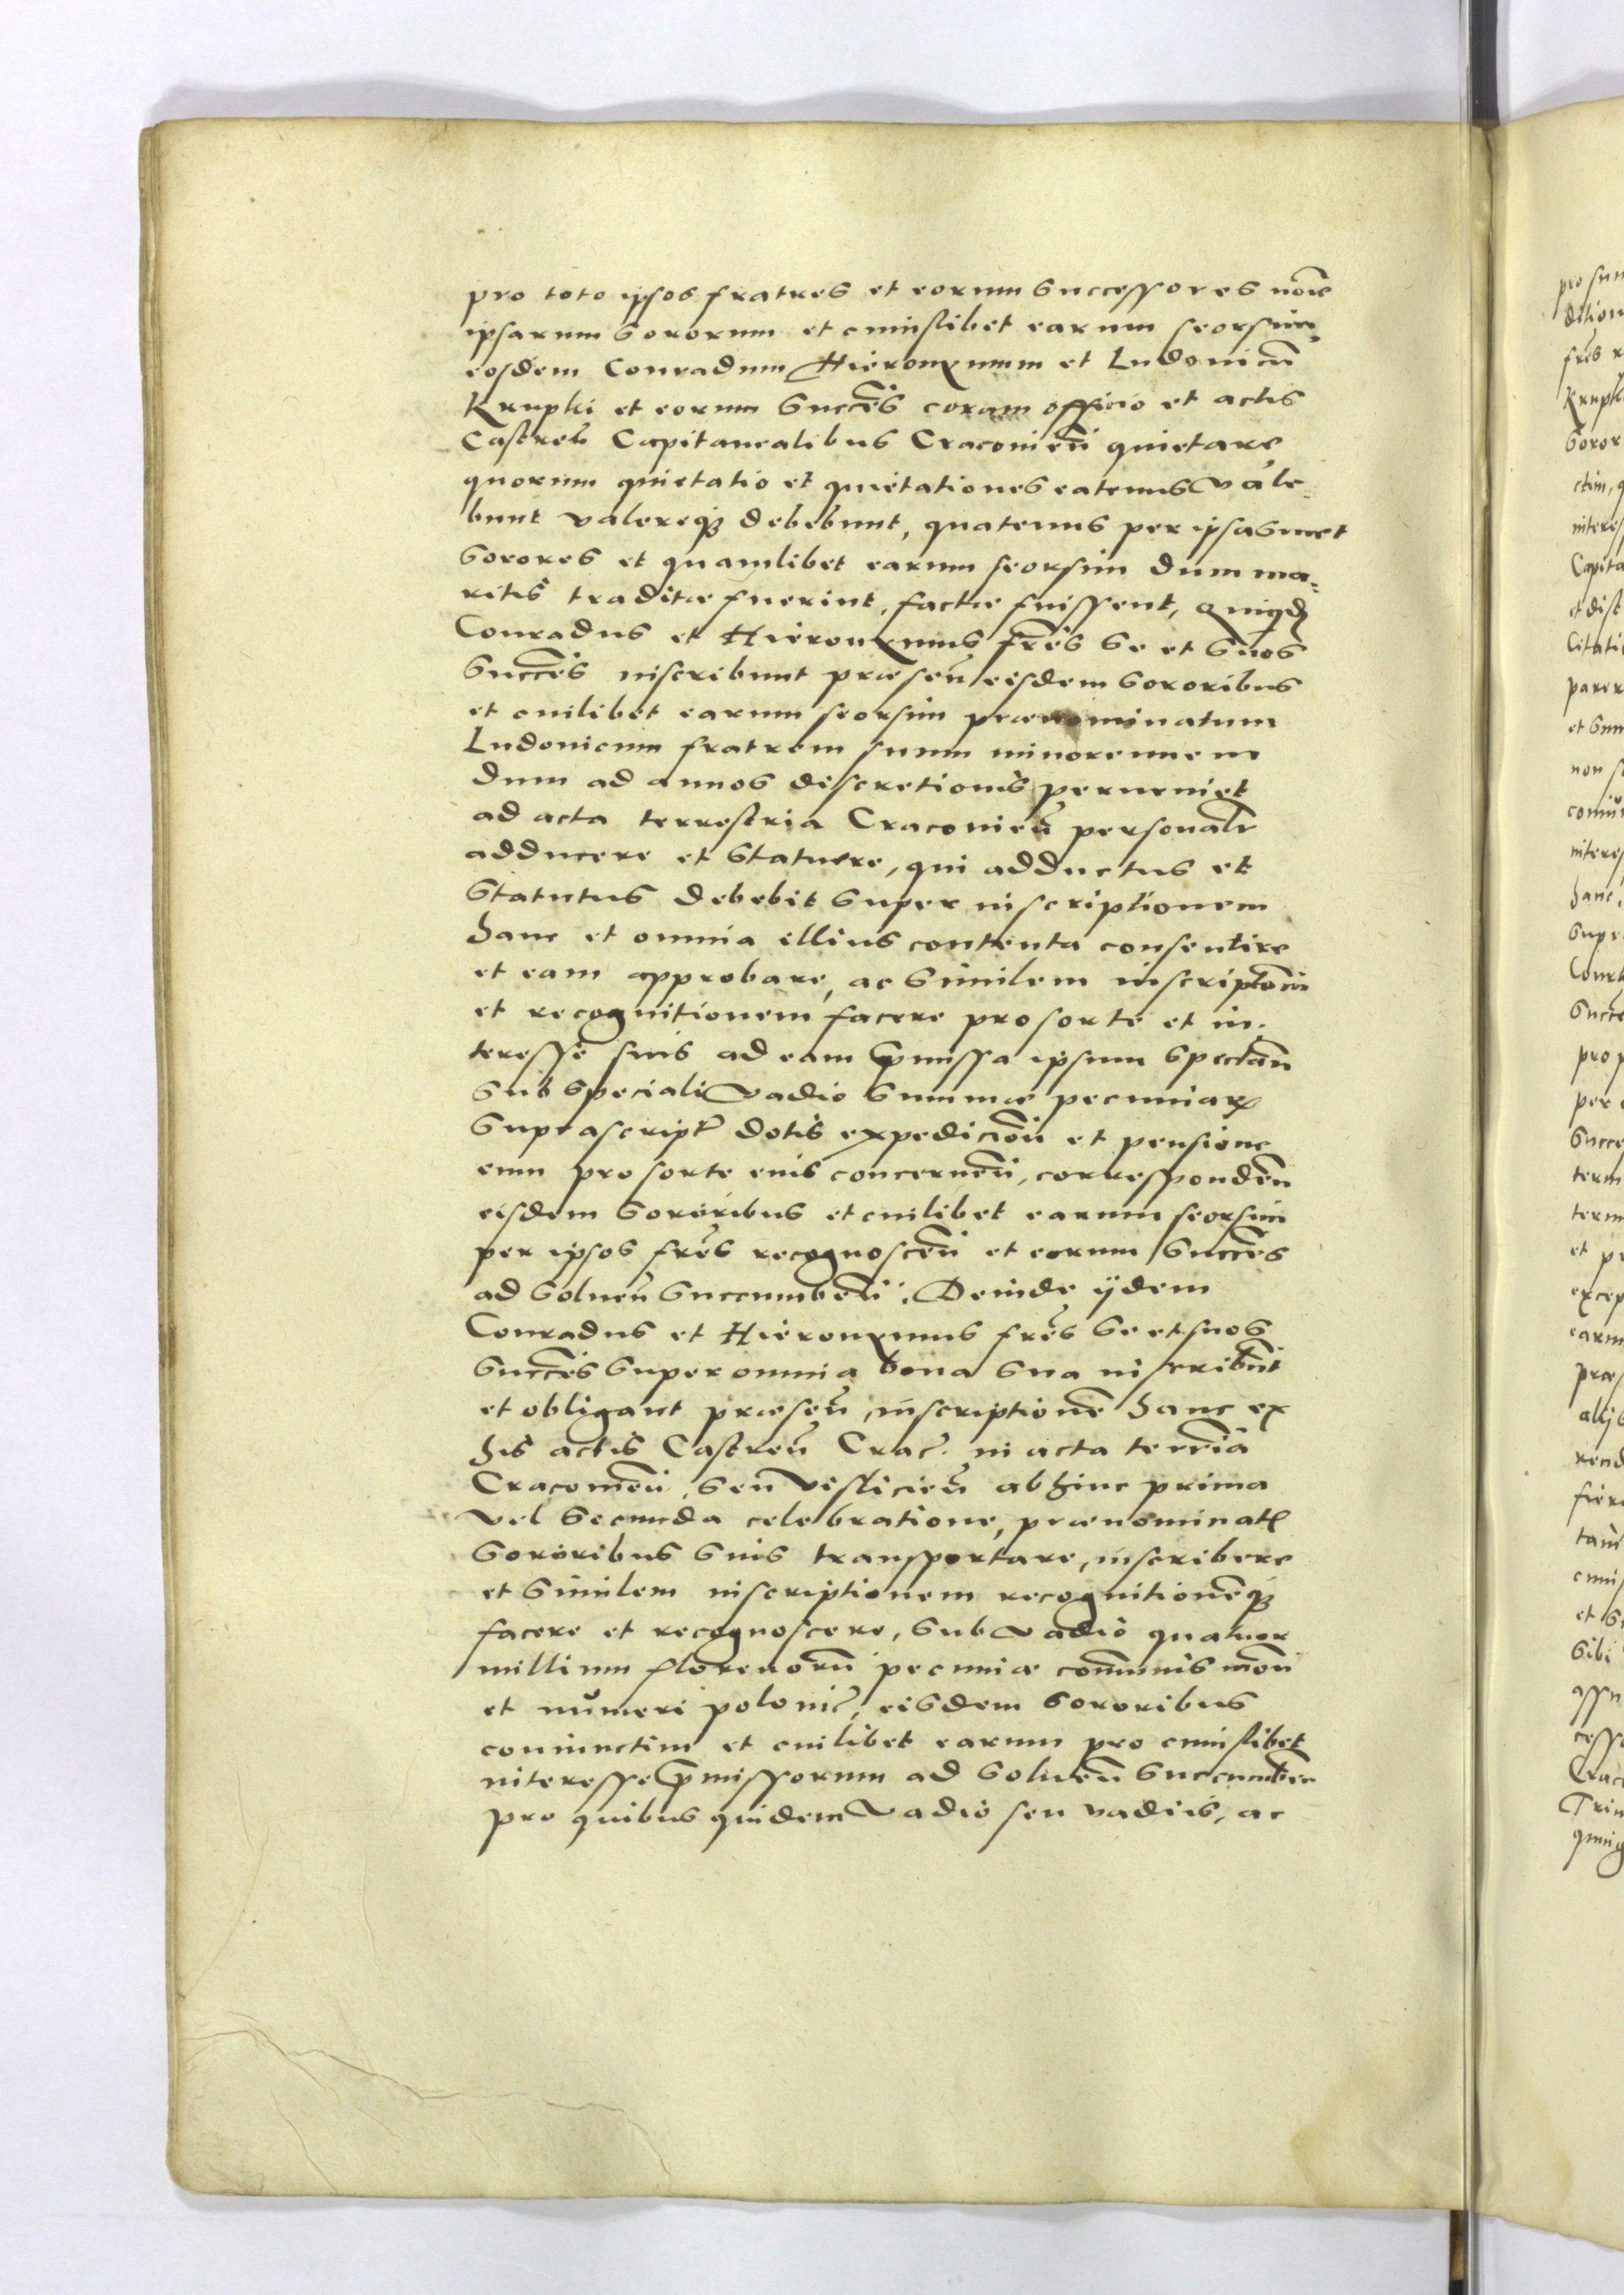 pro toto ipsos fratres et eorum successores noīe
ipsarum sororum et cuiuslibet earum seorsim,
eosdem Conradum Hieronymum et Ludouicū
Krupki et eorum Succēs coram officio et actis
Castreñ Capitanealibus Cracouieñ quietare
quorum quietatio et quietationes eatenus vale=
bunt valereq́ꝫ debebunt, quatenus per ipsasmet
sorores et quamlibet earum seorsim dum ma=
ritis traditæ fuerint, factæ fuissent,
Conradus et Hieronymus frēs se et suos
Succēs inscribunt præseñ eisdem sororibus
et cuilibet earum seorsim prænominatum
Ludouicum fratrem suum minorennem
dum ad annos discretionis perueniet
ad acta terrestria Cracouieñ personalr
adducere et statuere, qui adductus et
statutus debebit super inscriptionem
hanc et omnia illius contenta consentire
et eam approbare, ac similem inscriptōem
et recognitionem facere pro sorte et in=
teresse suis ad eam p̄missa ipsum spectañ
sub speciali vadio summæ pecuniarꝝ
suprascript dotis expedicioñ et pensione
eum pro sorte eius concerneñ, correspondeñ
eisdem sororibus et cuilibet earum seorsim
per ipsos frēs recognosceñ et eorum Succēs
ad solueñ succumbeñ. Deinde ijdem
Conradus et Hieronymus frēs se et suos
Succēs super omnia bona sua inscribūt
et obligant præseñ, inscriptionē hanc ex
his actis Castreñ Crac. in acta terrīa
Cracouieñ, seu visliciеñ abhinc prima
vel secunda celebratione, prænominat
sororibus suis transportare, inscribere
et similem inscriptionem recognitionēqꝫ
facere et recognoscere, sub vadio quatuor
millium florenorū pecuniæ cōmunis moñ
et nŭmeri polonic, eisdem sororibus
coniunctim et cuilibet earum pro cuiuslibet
interesse p̄missorum ad solueñ succumbeñ
pro quibus quidem vadio seu vadiis, ac